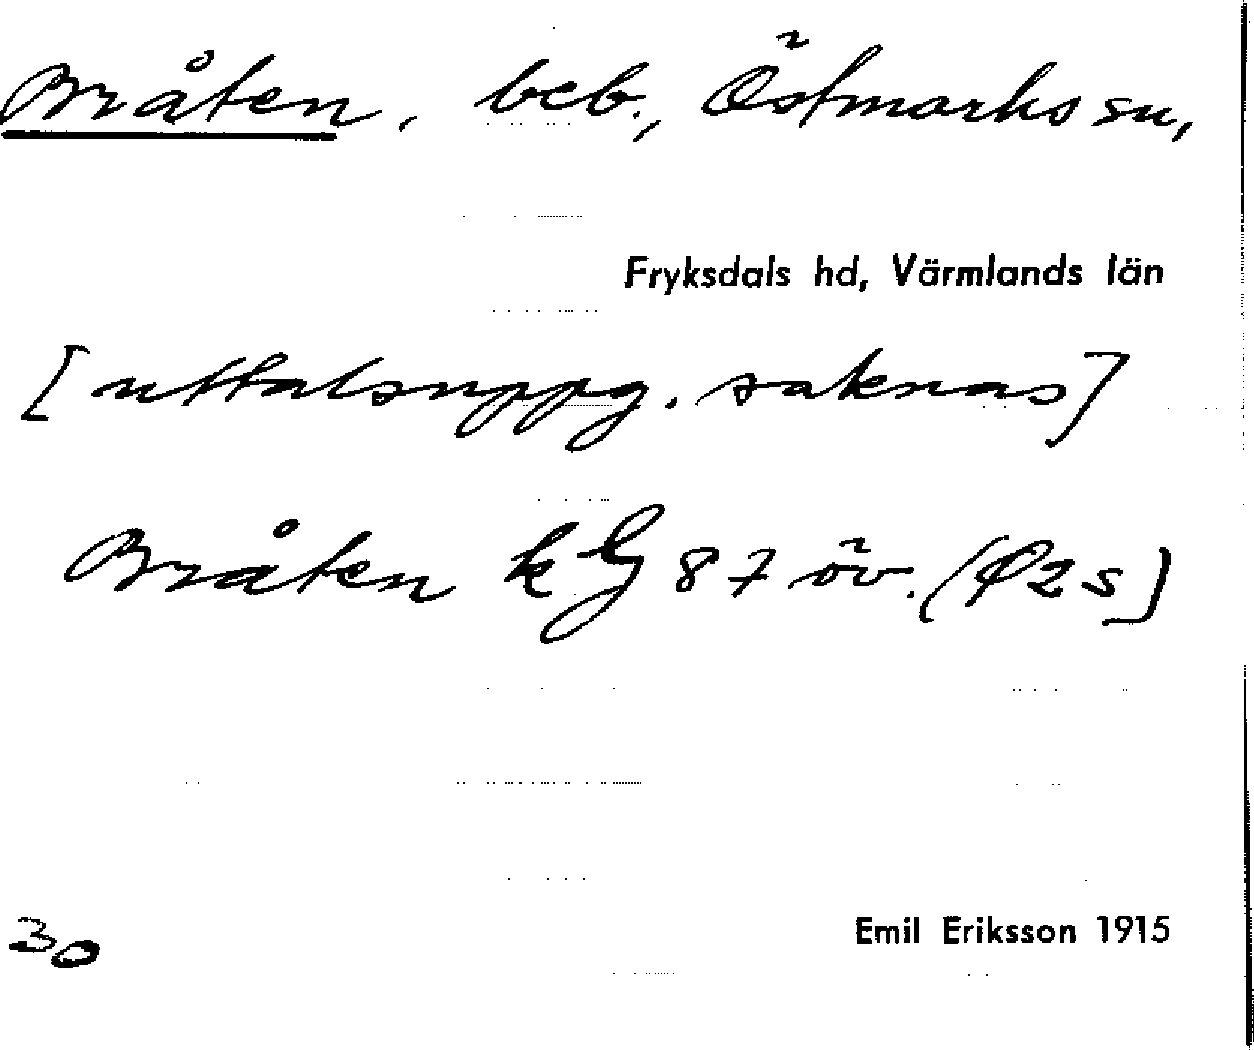 Bråten, beb., Östmarks sn,
Fryksdals hd, Värmlands län
[uttalsuppg. saknas]
Bråten k 87 öv.
30
Emil Eriksson 1915